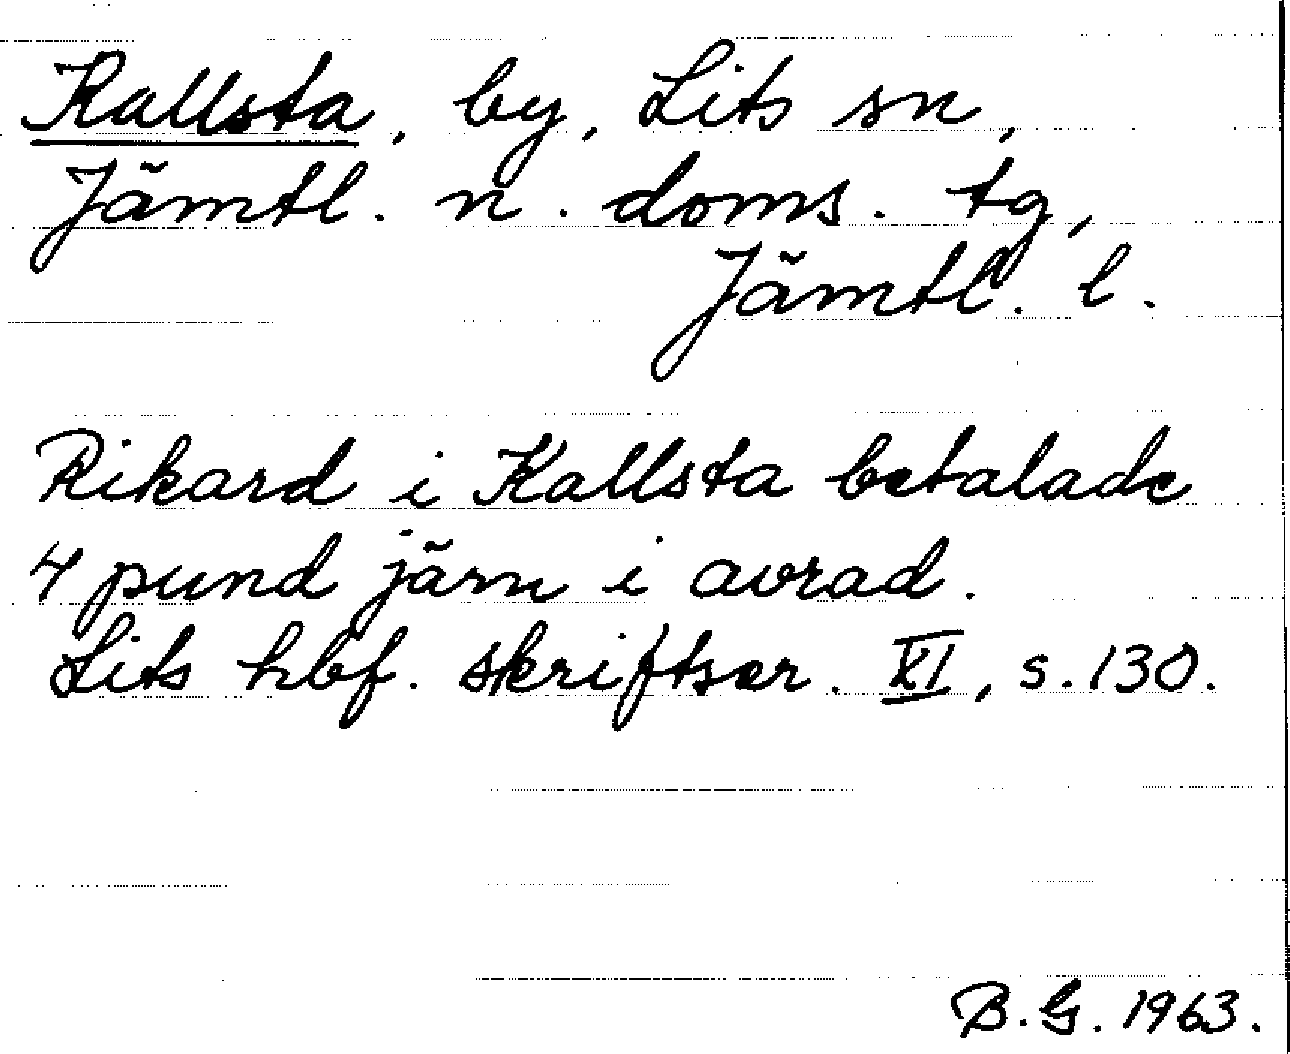 Kallsta, by, Lits sn,
Jämtl. n. doms. tg,
Jämtl. l.
Rikard i Kallsta betalade
4 pund järn i avrad.
Lits hbf. skriftser. XI, s. 130.
B.G. 1963.